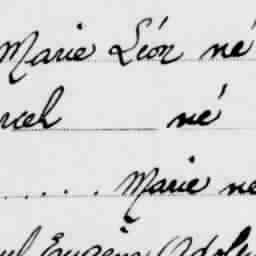 Marie Léon né
rcel né
. . . . Marie né
ul Eugène Adolp